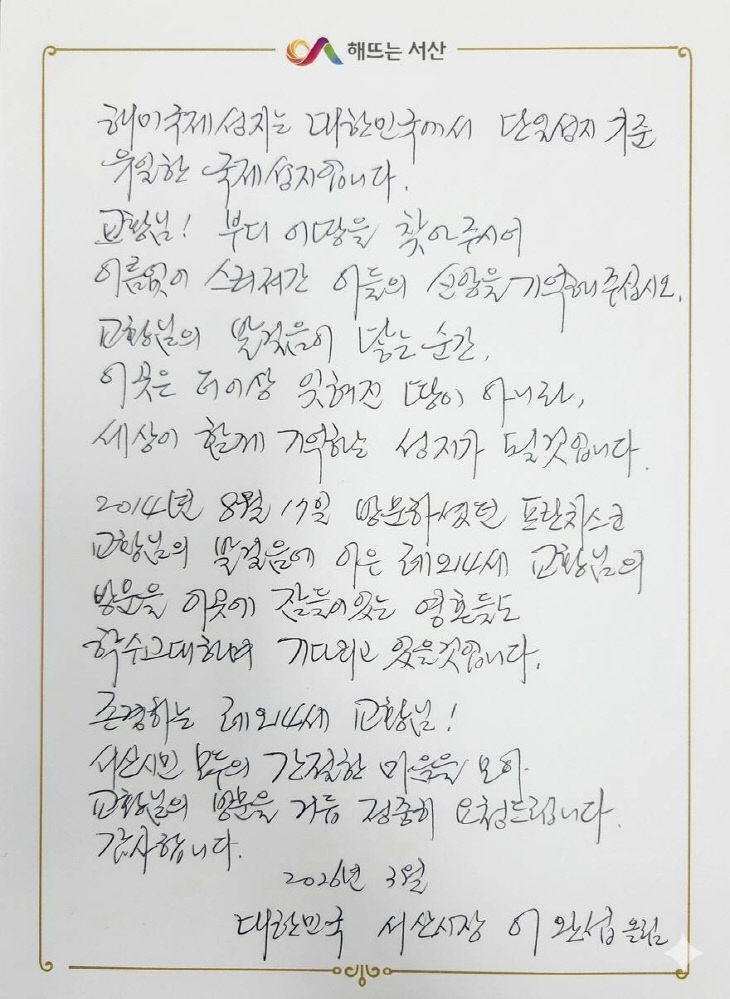 해뜨는 서산
해미국제성지는 대한민국에서 단일성지 기준
유일한 국제성지입니다.
교황님! 부디 이땅을 찾아주시어
이름없이 스러져간 이들의 신앙을 기억해 주십시오.
교황님의 발걸음이 닿는 순간,
이곳은 더이상 잊혀진 땅이 아니라,
세상이 함께 기억하는 성지가 될것입니다.
2014년 8월 17일 방문하셨던 프란치스코
교황님의 발걸음에 이은 레오14세 교황님의
방문을 이곳에 잠들어있는 영혼들도
학수고대하며 기다리고 있을것입니다.
존경하는 레오14세 교황님!
서산시민 모두의 간절한 마음을 모아
교황님의 방문을 거듭 정중히 요청드립니다.
감사합니다.
2026년 3월
대한민국 서산시장 이완섭 올림